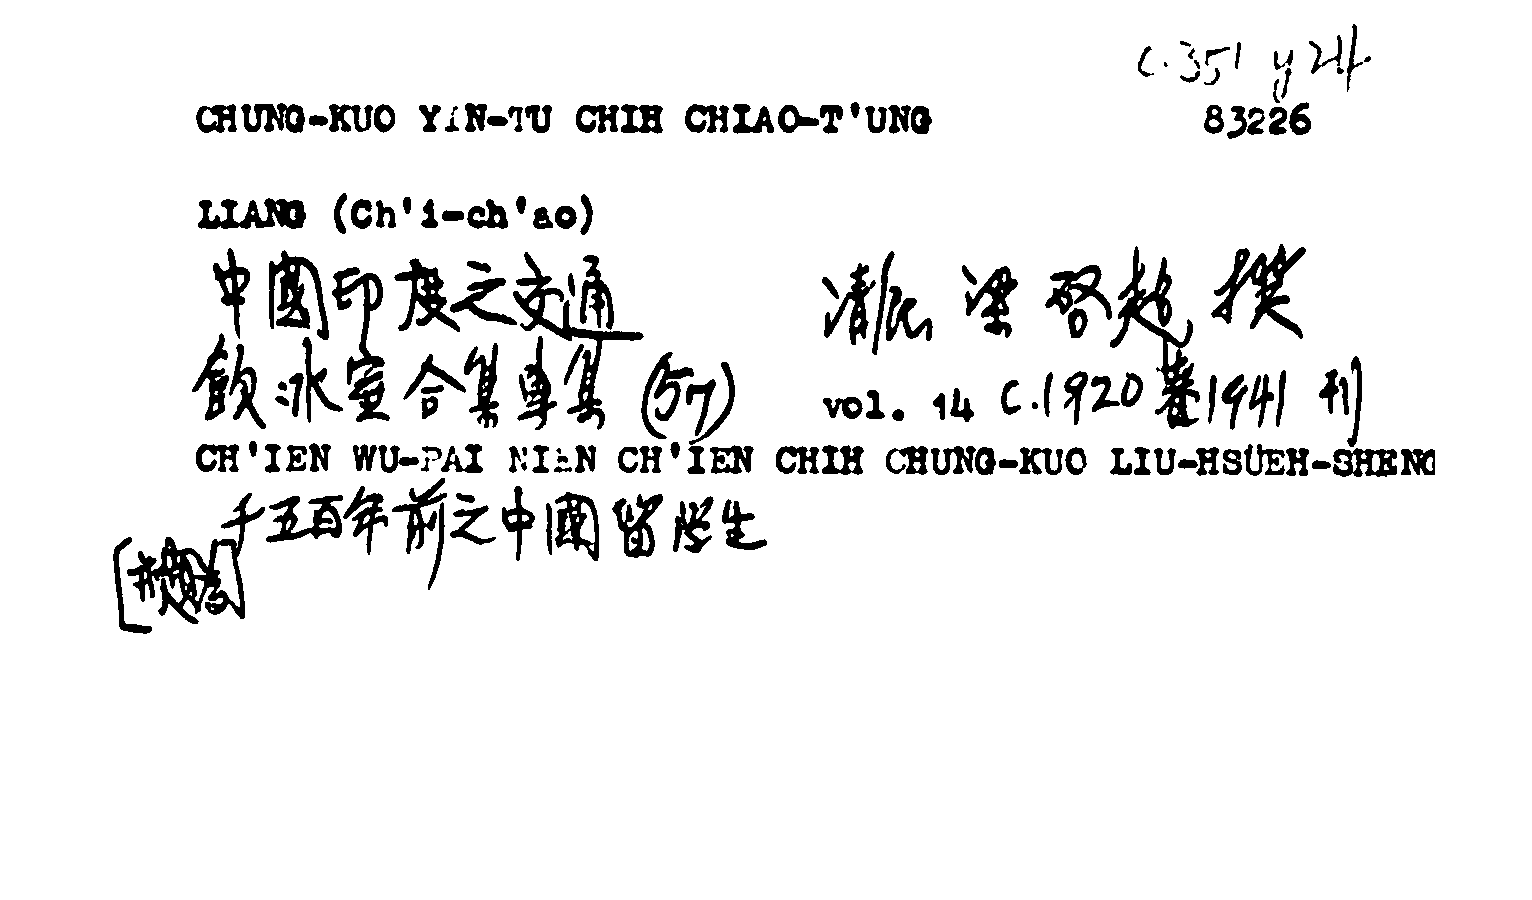 C.351 y24
CHUNG-KUO YIN-TU CHIH CHIAO-T'UNG 83226
LIANG (Ch'i-ch'ao)
中國印度之交通 清民 梁啓超 撰
飲冰室合集專集 (57) vol. 14 C.1920 著 1941 刊
CH'IEN WU-PAI NIEN CH'IEN CHIH CHUNG-KUO LIU-HSÜEH-SHENG
千五百年前之中國留學生